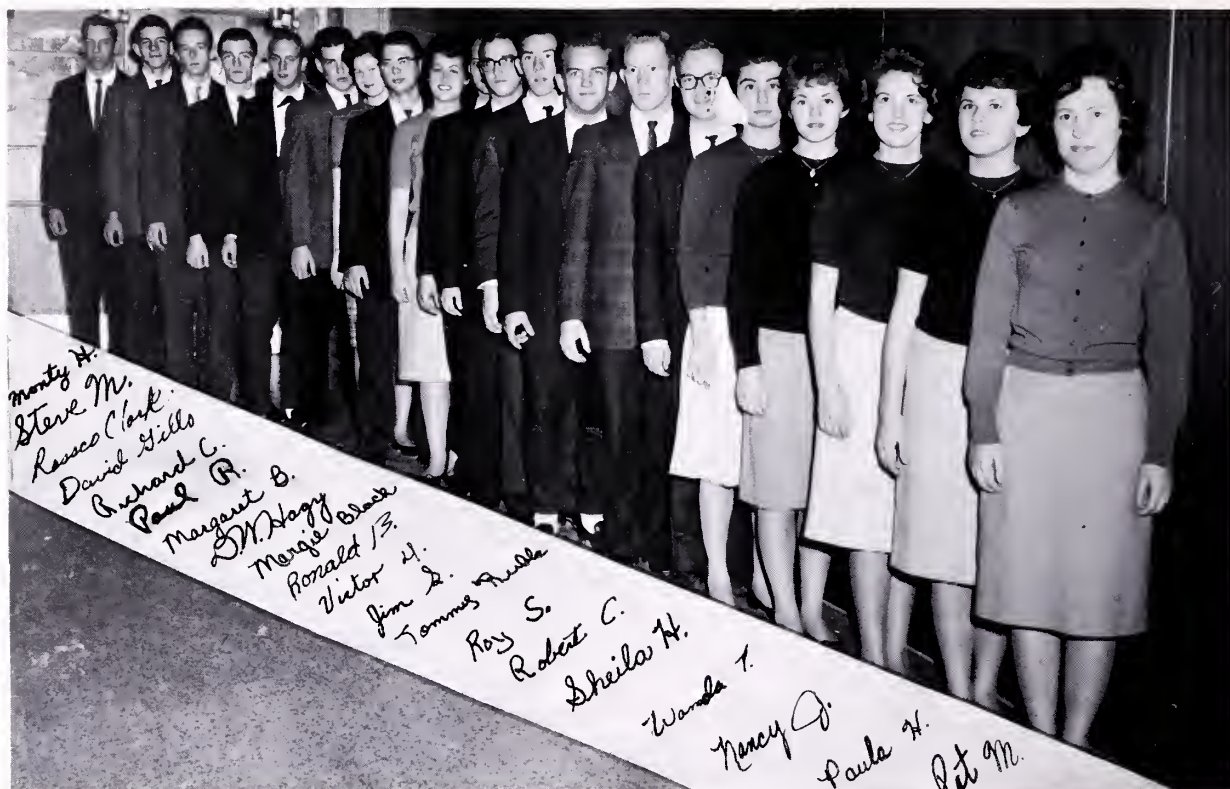 Monty H.
Steve M.
Rossco Clark.
David Gillo
Richard C.
Paul R.
Margaret B.
G.W. Hagy
Margie Black
Ronald B.
Victor H.
Jim S.
Tommy
Roy S.
Robert C.
Sheila H.
Wanda T.
Nancy J.
Paula H.
Pat M.